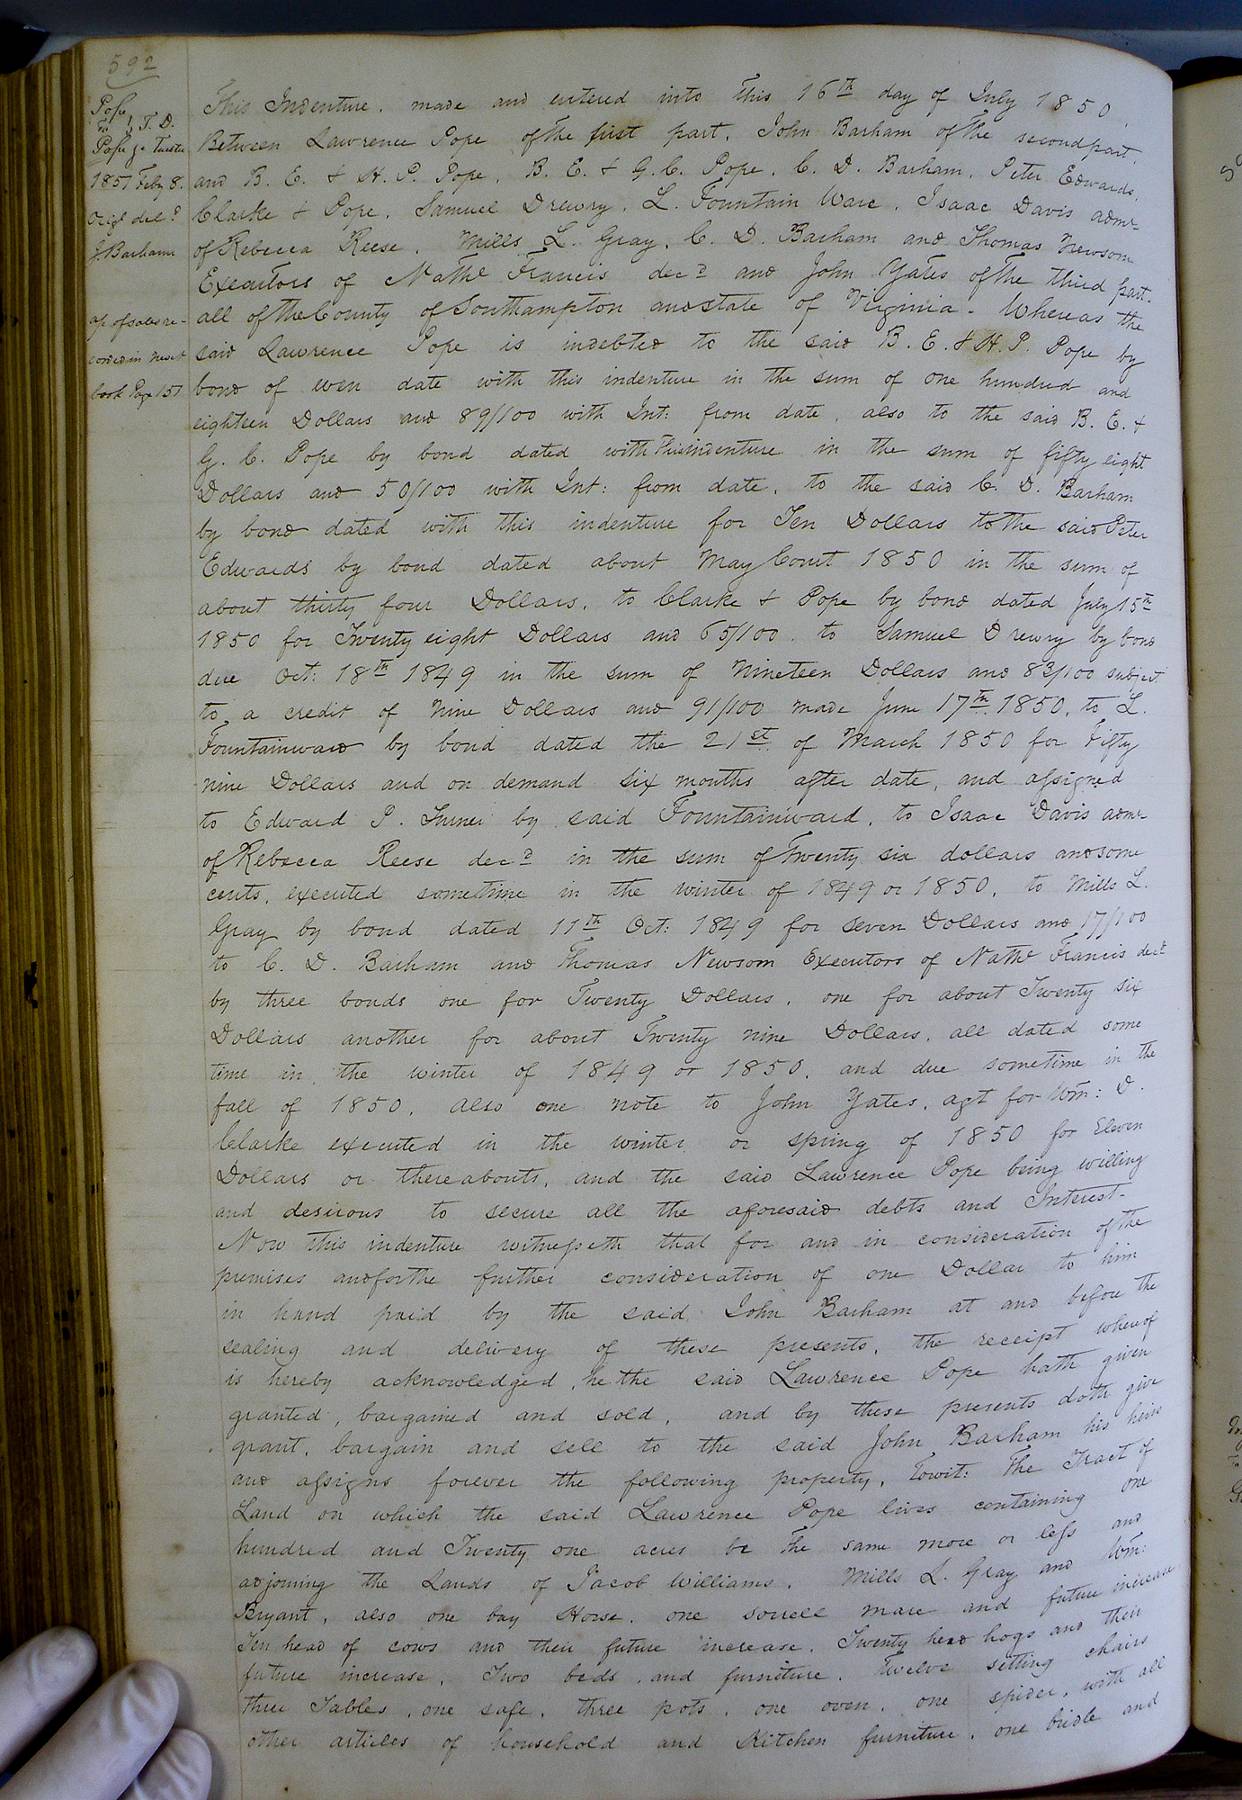 592
Pope
To } T. D.
Pope &c Trustee
1851 Feby 8.
Origl deld
J. Barham
ap of sales re-
corded in next
book Page 151
This Indenture. made and entered into this 16th day of July 1850,
Between Lawrence Pope of the first part, John Barham of the second part,
and B. E. & H. P. Pope, B. E. & G. C. Pope, C. D. Barham, Peter Edwards,
Clarke & Pope, Samuel Drewry, L. Fountain Ware, Isaac Davis admr
of Rebecca Reese, Mills L. Gray, C. D. Barham and Thomas Newsom
Executors of Nathl Francis decd and John Yates of the third part.
all of the County of Southampton and state of Virginia - Whereas the
said Lawrence Pope is indebted to the said B. E. & H. P. Pope by
bond of even date with this indenture in the sum of one hundred and
eighteen Dollars and 89/100 with Int: from date, also to the said B. E. &
G. C. Pope by bond dated with this indenture in the sum of fifty eight
Dollars and 50/100 with Int: from date, to the said C. D. Barham
by bond dated with this indenture for Ten Dollars to the said Peter
Edwards by bond dated about May Court 1850 in the sum of
about thirty four Dollars, to Clarke & Pope by bond dated July 15th
1850 for Twenty eight Dollars and 65/100. to Samuel Drewry by bond
due Oct: 18th 1849 in the sum of Nineteen Dollars and 83/100 subject
to a credit of Nine Dollars and 91/100 made June 17th 1850, to L.
Fountainward by bond dated the 21st of March 1850 for Fifty
nine Dollars and on demand six months after date, and assigned
to Edward P. Turner by said Fountainward, to Isaac Davis admr
of Rebecca Reese decd in the sum of Twenty six dollars and some
cents, executed sometime in the winter of 1849 or 1850, to Mills L.
Gray by bond dated 11th Oct: 1849 for seven Dollars and 17/100
to C. D. Barham and Thomas Newsom Executors of Nathl Francis decd
by three bonds one for Twenty Dollars, one for about Twenty six
Dollars another for about Twenty nine Dollars, all dated some
time in the winter of 1849 or 1850, and due sometime in the
fall of 1850, also one note to John Yates, agt for Wm: D.
Clarke executed in the winter or spring of 1850 for Eleven
Dollars or thereabouts, and the said Lawrence Pope being willing
and desirous to secure all the aforesaid debts and Interest-
Now this indenture witnesseth that for and in consideration of the
premises and for the further consideration of one Dollar to him
in hand paid by the said John Barham at and before the
sealing and delivery of these presents, the receipt whereof
is hereby acknowledged, he the said Lawrence Pope hath given
granted, bargained and sold, and by these presents doth give
grant, bargain and sell to the said John Barham his heirs
and assigns forever the following property, Towit: The Tract of
Land on which the said Lawrence Pope lives containing one
hundred and Twenty one acres be the same more or less and
adjoining the Lands of Jacob Williams, Mills L. Gray and Wm:
Bryant, also one bay Horse, one sorrell mare and future increase
Ten head of cows and their future increase, Twenty head hogs and their
future increase, Two beds and furniture, Twelve setting chairs
three Tables, one safe, three pots, one oven, one spider, with all
other articles of household and Kitchen furniture, one bridle and